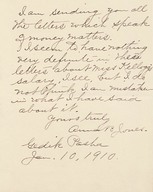 I am sending you all
the letters which speak
of money matters.
I seem to have nothing
very definite in these
letters about Miss Kellogg's
salary, I see, but I do
not think I am mistaken
in what I have said
about it.
Yours truly,
Anna B. Jones.
Gedik Pasha
Jan. 10, 1910.